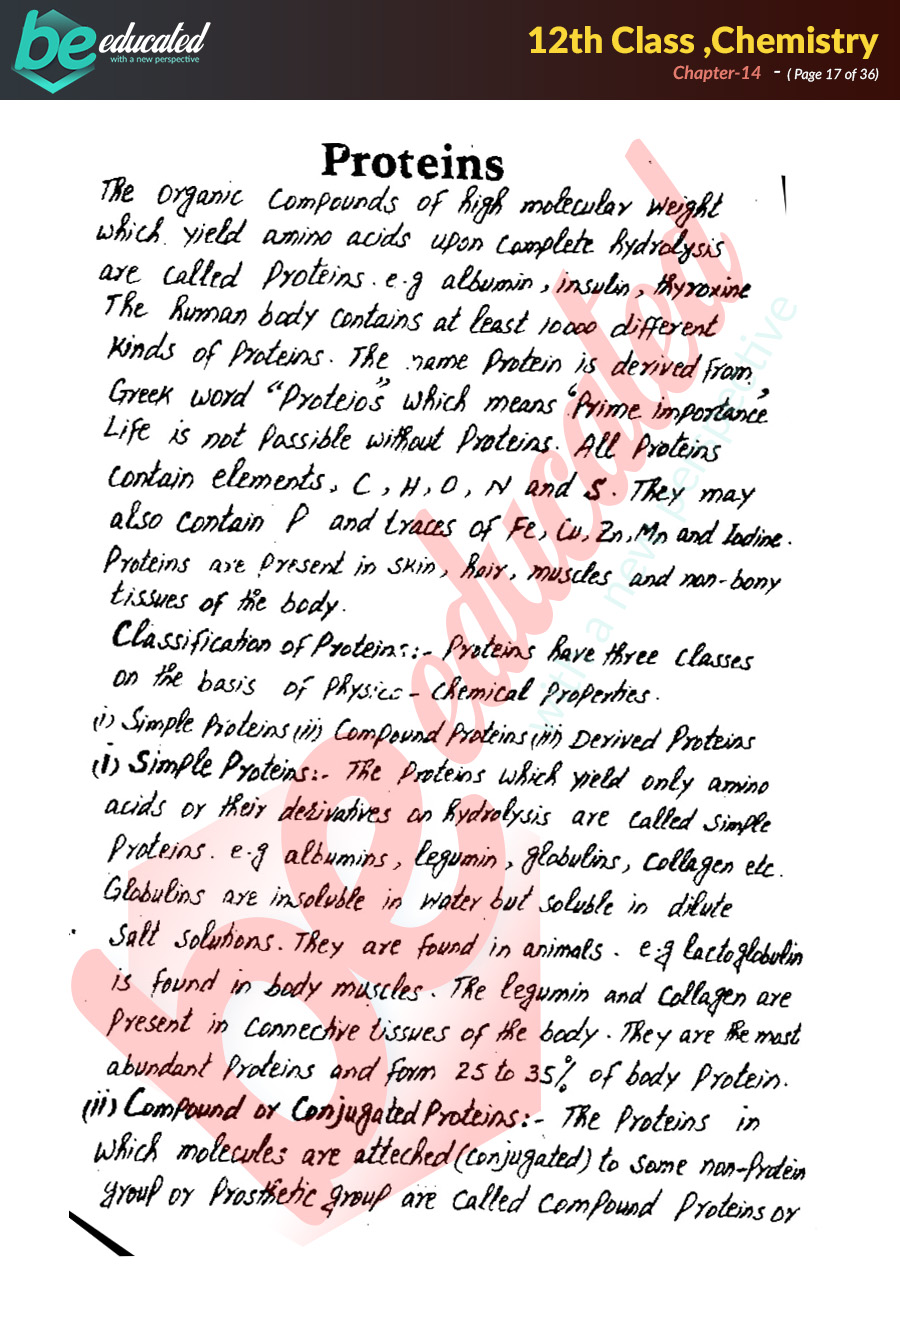 be educated
with a new perspective
12th Class ,Chemistry
Chapter-14 - ( Page 17 of 36)
Proteins
The organic compounds of high molecular weight
which yield amino acids upon complete hydrolysis
are called Proteins. e.g albumin, insulin, thyroxine
The human body contains at least 10000 different
kinds of Proteins. The name Protein is derived from
Greek word "Proteios" which means "Prime importance"
Life is not Possible without Proteins. All Proteins
contain elements, C, H, O, N and S. They may
also contain P and traces of Fe, Cu, Zn, Mn and Iodine.
Proteins are Present in skin, hair, muscles and non-bony
tissues of the body.
Classification of Proteins:- Proteins have three classes
on the basis of Physico-Chemical Properties.
(i) Simple Proteins (ii) Compound Proteins (iii) Derived Proteins
(i) Simple Proteins:- The Proteins which yield only amino
acids or their derivatives on hydrolysis are called simple
Proteins. e.g albumins, legumin, globulins, collagen etc.
Globulins are insoluble in water but soluble in dilute
salt solutions. They are found in animals. e.g lactoglobulin
is found in body muscles. The legumin and collagen are
Present in connective tissues of the body. They are the most
abundant Proteins and form 25 to 35% of body Protein.
(ii) Compound or Conjugated Proteins:- The Proteins in
which molecules are atteched (conjugated) to some non-Protein
group or Prosthetic group are called compound Proteins or
be educated
with a new perspective